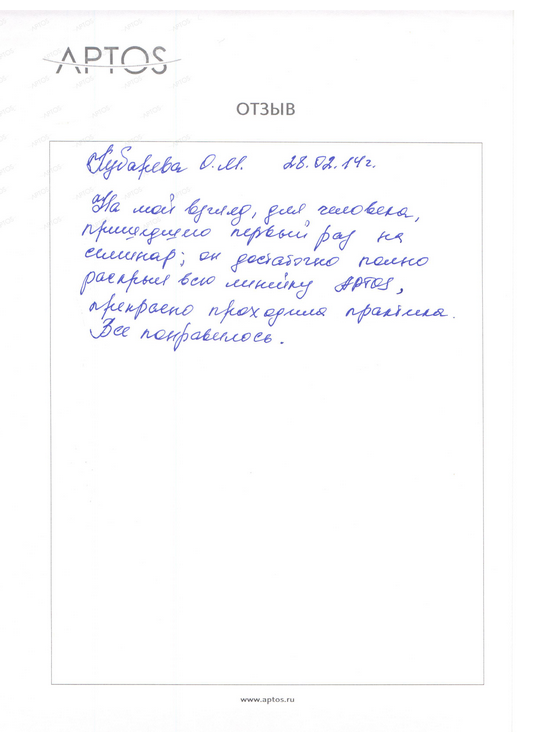 APTOS
ОТЗЫВ
Губарева О.М. 28.02.14г.
На мой взгляд, для человека,
пришедшего первый раз на
семинар; он достаточно полно
раскрыл всю линейку APTOS,
прекрасно проходила практика.
Все понравилось.
www.aptos.ru